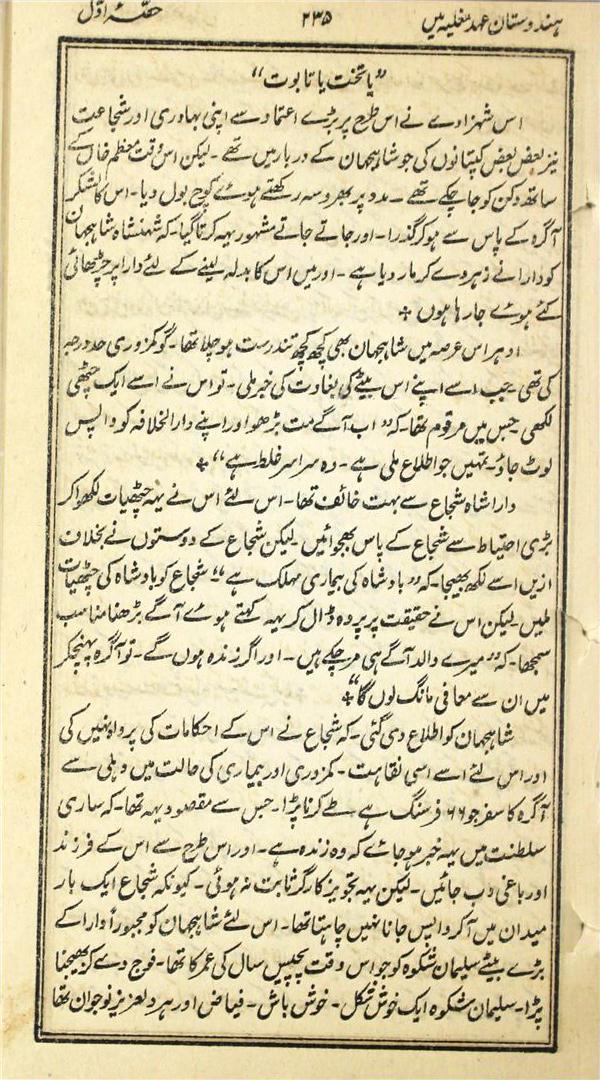 ہندوستان عہد مغلیہ میں ۲۳۵ حصّہ اوّل
”یا تخت یا تابوت“
اس شہزادے نے اس طرح پر بڑے اعتماد سے اپنی بہادری اور شجاعت
نیز بعض بعض کپتانوں کی جو شاہجہان کے دربار میں تھے۔ لیکن اس وقت معظم خاں کے
ساتھ دکن کو جا چکے تھے۔ مدد پر بھروسہ رکھتے ہوئے کوچ بول دیا۔ اس کا لشکر
آگرہ کے پاس سے ہو کر گذرا۔ اور جاتے جاتے مشہور یہہ کرتا گیا۔ کہ شہنشاہ شاہجہان
کو دارا نے زہر دے کر مار دیا ہے۔ اور میں اس کا بدلہ لینے کے لئے دارا پر چڑھائی
کئے ہوئے جا رہا ہوں +
ادہر اس عرصہ میں شاہجہان بھی کچھ کچھ تندرست ہو چلا تھا۔ گو کمزوری حد درجہ
کی تھی۔ جب اسے اپنے اس بیٹے کی بغاوت کی خبر ملی۔ تو اس نے اسے ایک چٹھی
لکھی جس میں مرقوم تھا۔ کہ ”اب آگے مت بڑھو اور اپنے دارالخلافہ کو واپس
لوٹ جاؤ۔ تمہیں جو اطلاع ملی ہے۔ وہ سراسر غلط ہے“ +
دارا شاہ شجاع سے بہت خائف تھا۔ اس لئے اس نے یہہ چٹھیات لکھوا کر
بڑی احتیاط سے شجاع کے پاس بھجوائیں۔ لیکن شجاع کے دوستوں نے بخلاف
ازیں اسے لکھ بھیجا۔ کہ ”بادشاہ کی بیماری مہلک ہے“ شجاع کو بادشاہ کی چٹھیات
ملیں۔ لیکن اس نے حقیقت پر پردہ ڈال کر یہہ کہتے ہوئے آگے بڑھنا مناسب
سمجھا۔ کہ ”میرے والد آگے ہی مر چکے ہیں۔ اور اگر زندہ ہوں گے۔ تو آگرہ پہنچکر
میں ان سے معافی مانگ لوں گا“ +
شاہجہان کو اطلاع دی گئی۔ کہ شجاع نے اس کے احکامات کی پرواہ نہیں کی
اور اس لئے اسے اسی نقاہت۔ کمزوری اور بیماری کی حالت میں دہلی سے
آگرہ کا سفر جو ۶۶ فرسنگ ہے طے کرنا پڑا۔ جس سے مقصود یہہ تھا۔ کہ ساری
سلطنت میں یہہ خبر ہو جائے کہ وہ زندہ ہے۔ اور اس طرح سے اس کے فرزند
اور باغی دب جائیں۔ لیکن یہہ تجویز کارگر ثابت نہ ہوئی۔ کیونکہ شجاع ایک بار
میدان میں آ کر واپس جانا نہیں چاہتا تھا۔ اس لئے شاہجہان کو مجبوراً دارا کے
بڑے بیٹے سلیمان شکوہ کو جو اس وقت پچیس سال کی عمر کا تھا۔ فوج دے کر بھیجنا
پڑا۔ سلیمان شکوہ ایک خوش شکل۔ خوش باش۔ فیاض اور ہر دلعزیز نوجوان تھا